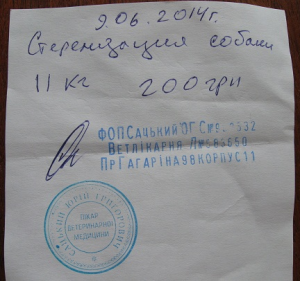 9.06.2014г.
Стерелизация собаки
11 кг 200 грн
ФОП Сацький
Ветлікарня
Пр Гагаріна 98 корпус 11
САЦЬКИЙ ЮРІЙ ГРИГОРОВИЧ
ЛІКАР
ВЕТЕРИНАРНОЇ
МЕДИЦИНИ